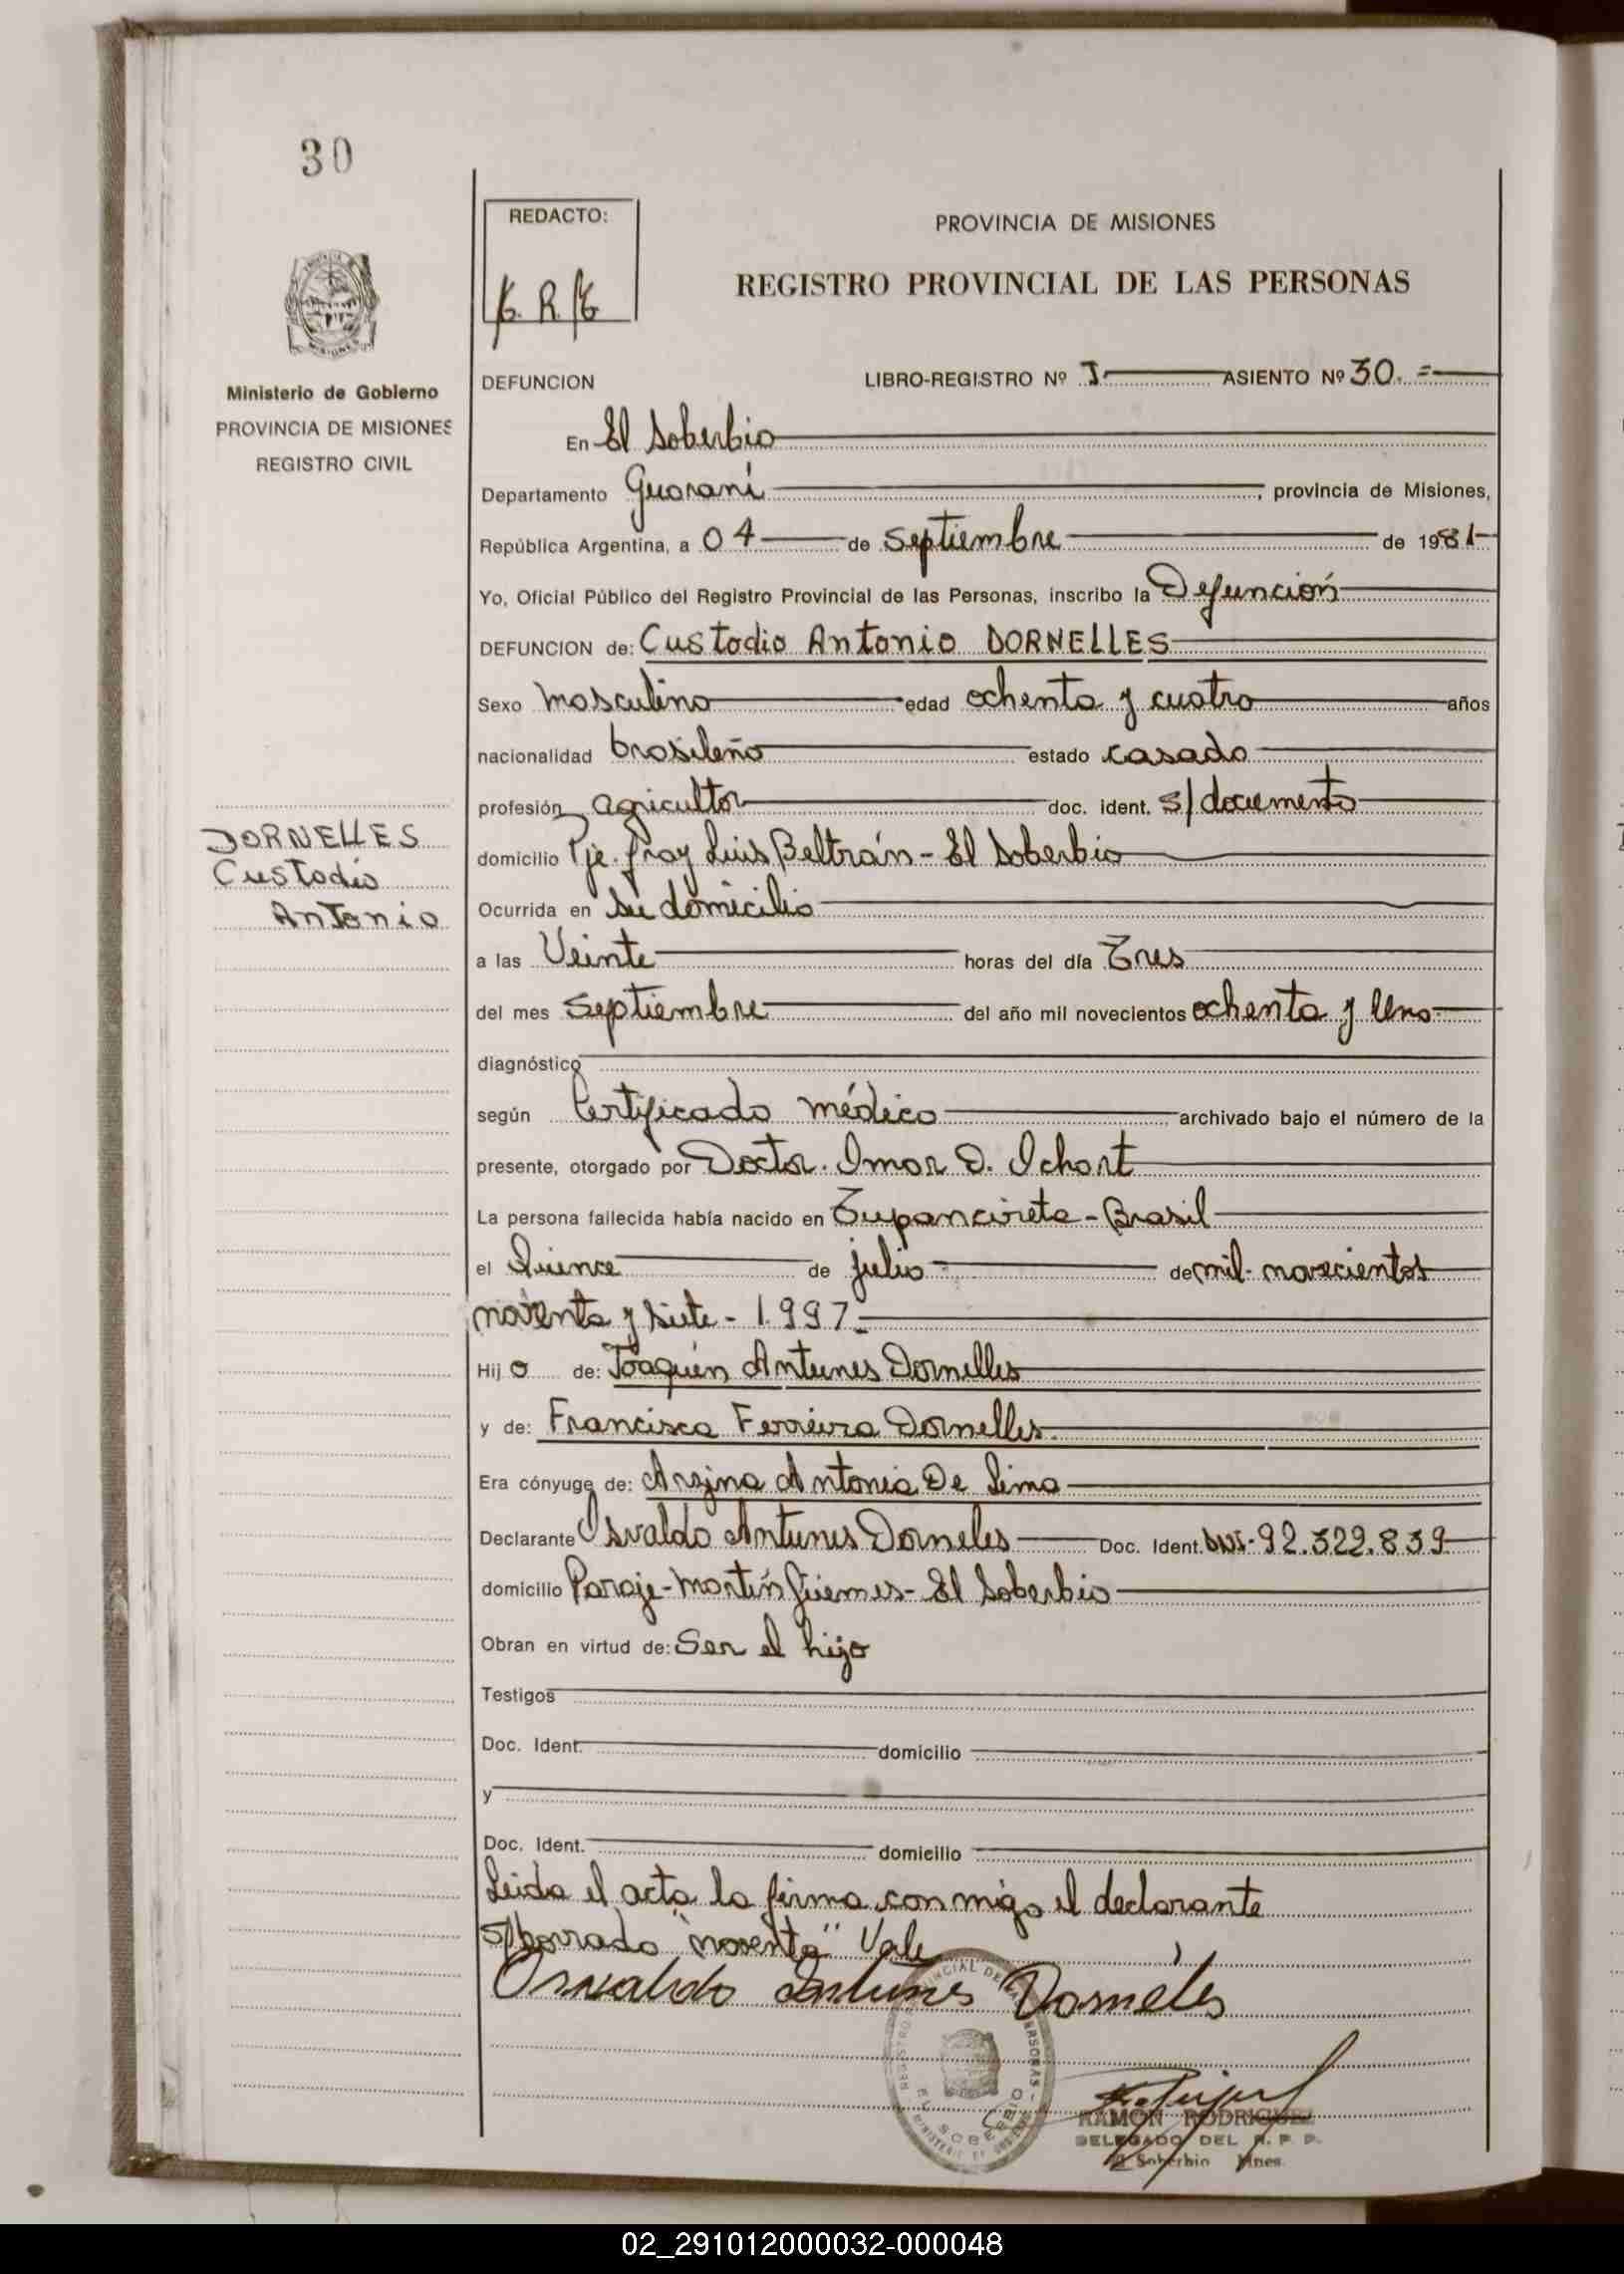 30
REDACTO:
PROVINCIA DE MISIONES
REGISTRO PROVINCIAL DE LAS PERSONAS
MISIONES
Ministerio de Gobierno
PROVINCIA DE MISIONES
REGISTRO CIVIL
DEFUNCION LIBRO-REGISTRO Nº I ASIENTO Nº 30.=
En El Soberbio
Departamento Guaraní, provincia de Misiones,
República Argentina, a 04 de Septiembre de 1981
Yo, Oficial Público del Registro Provincial de las Personas, inscribo la Defunción
DEFUNCION de: Custodio Antonio DORNELLES
Sexo masculino edad ochenta y cuatro años
nacionalidad brasileño estado casado
profesión agricultor doc. ident. s/documento
domicilio Pje. fray Luis Beltrán - El Soberbio
DORNELLES
Custodio
Antonio
Ocurrida en su domicilio
a las Veinte horas del día Tres
del mes Septiembre del año mil novecientos ochenta y Uno
diagnóstico
según Certificado médico archivado bajo el número de la
presente, otorgado por Doctor. Omar D. Ichart
La persona fallecida había nacido en Tupancireta - Brasil
el Quince de julio de mil novecientos
noventa y siete - 1.997.-
Hijo de: Joaquín Antunes Dornelles
y de: Francisca Ferreira Dornelles.
Era cónyuge de: Arzina Antonia De Lima
Declarante Osvaldo Antunes Dorneles Doc. Ident. DNI- 92.322.839
domicilio Paraje - Martín Güemes - El Soberbio
Obran en virtud de: Ser el hijo
Testigos
Doc. Ident. domicilio
y
Doc. Ident. domicilio
Leida el acta la firma conmigo el declarante
s/borrado "noventa" Vale
Osvaldo Antunes Dorneles
REGISTRO PROVINCIAL DE LAS PERSONAS -
EL SOBERBIO
RAMON RODRIGUEZ
DELEGADO DEL R. P. P.
El Soberbio Mnes.
02_291012000032-000048